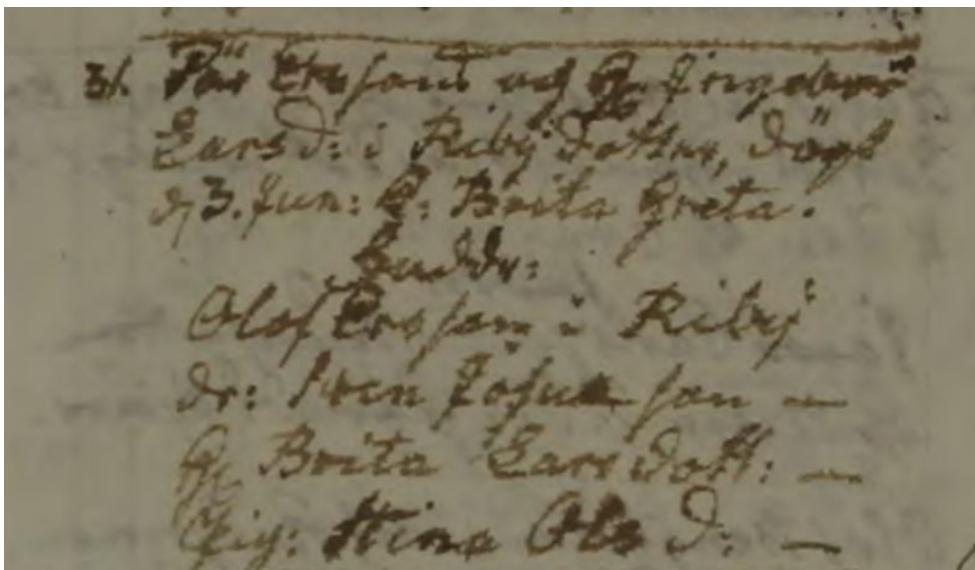 31. Pär Ersons och H. Ingeborr
Lars D: i Riby dotter, döpt
d 3. Jun: N: Brita Greta.
Faddr:
Olof Ersson i Riby
dr: Sven Johansson —
H. Brita Larsdott: —
Pig: Stina Ols D: —